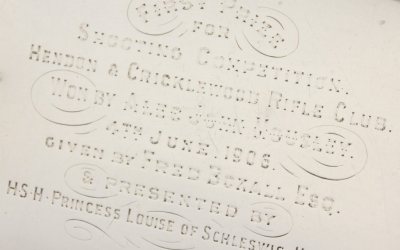 FIRST PRIZE
FOR
SHOOTING COMPETITION.
HENDON & CRICKLEWOOD RIFLE CLUB.
WON BY ALEC JOHN
4TH JUNE. 1906.
GIVEN BY FRED BOXALL ESQ.
& PRESENTED BY
H.S.H. PRINCESS LOUISE OF SCHLESWIG